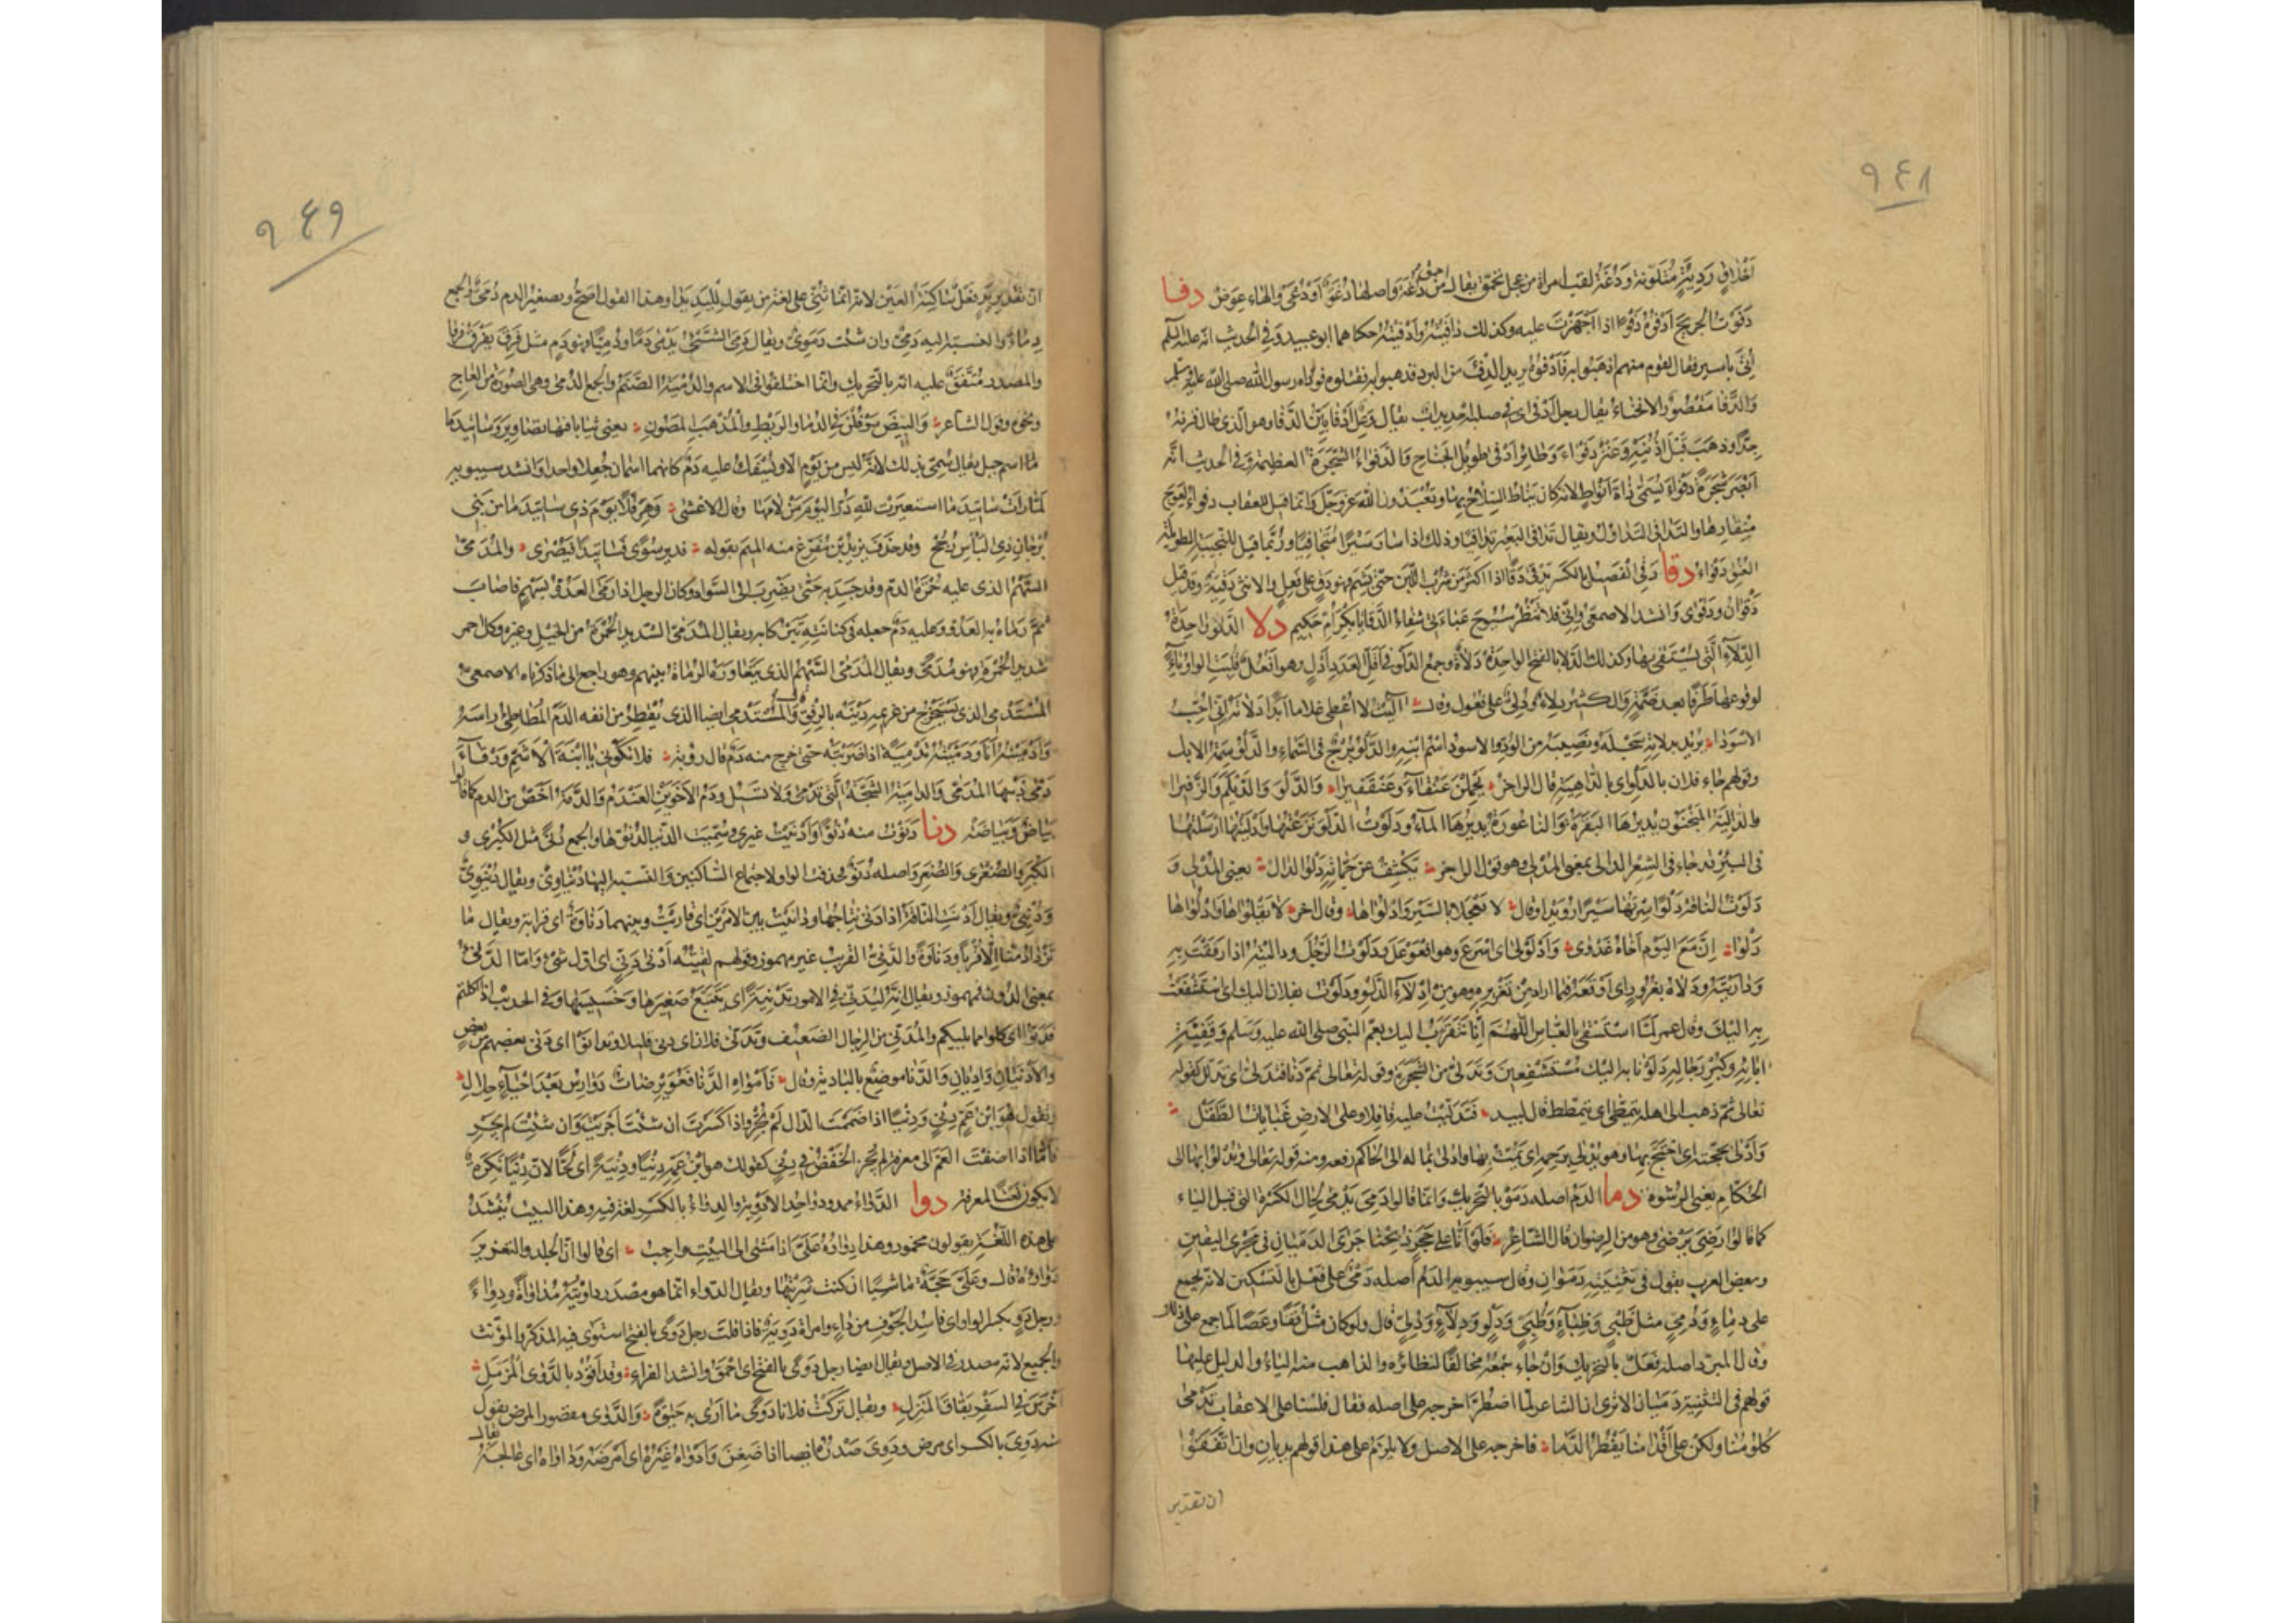 ٩٤٨
أخلاق رديّة متلوّنة ودُغَةُ لقب امرأة من عجل تحمّق يقال احمق من دُغَةَ واصلها دُغَوٌ أو دُغَىٌ والهاء عوض دفا
دفوت الجريح أدفوه دفوًا اذا اجهزت عليه وكذلك دافيته وأدفيته حكاهما ابو عبيد وفى الحديث انه عليه السلم
أتى باسير فقال لقوم منهم اذهبوا به فأدفوه يريد الدفء من البرد فذهبوا به فقتلوه فوداه رسول الله صلى الله عليه وسلم
والدفا مقصور الانحناء يقال رجل أدفى اى فى صلبه احديداب يقال وعل أدفا بين الدفا وهو الذى طال قرنه
جدّا وذهب قبل أذنيه وعنز دفواء وطائر ادفى طويل الجناح والدفواء الشجرة العظيمة وفى الحديث انه
ابصر شجرة دفواء تسمى ذات أنواط لانه كان يناط السلاح بها وتعبد دون الله عز وجل وانما قيل للعقاب دفواء لعوج
منقارها والتدافى التداول يقال تدافى البعير تدافيا وذلك اذا سار سيرا متجافيا وربّما قيل للنجيبة الطويلة
العنق دفواء دقا دقى الفصيل بالكسر يدقى دقًا اذا اكثر من شرب اللبن حتى بشم فهو دقٍ على فعل والانثى دقية وقد قيل
دقوان ودقوى وانشد الاصمعى وانى فلا تنظر سيوح عباءتى شفاء الدقا يا بكر ام حكيم دلا الدلو واحدة
الدلاء التى يستقى بها وكذلك الدلا بالفتح الواحدة دلاة وجمع الدلو فى اقل العدد أدلٍ وهو أفعل قلبت الواو ياء
لوقوعها طرفا بعد ضمة والكثير دلاء ودلىّ على فعول وقال آليت لا اعطى غلاما ابدا دلاته انى احب
الاسودا يريد بدلاته سجله ونصيبه من الود والاسود اسم ابنه والدلو برج فى السماء والدلو سمة الابل
وقولهم جاء فلان بالدلو اى بالداهية قال الراجز يحملن عنقاء وعنقفيرا والدلو والديلم والزفيرا
والدالية المنجنون يديرها البقرة والناعورة يديرها الماء ودلوت الدلو نزعتها وأدليتها ارسلتها
فى البئر وقد جاء فى الشعر الدالى بمعنى المدلى وهو قول الراجز يكشف عن جمّاته دلو الدال يعنى المدلى و
دلوت الناقة دلوًا سيرتها سيرا رويدا وقال لا تعجلا بالسير وادلواها وقال اخر لا تقلواها وادلواها
دلوا ان مع اليوم اخاه غدوى وادلولى اى اسرع وهو افعوعل ودلوت الرجل وداليته اذا رفقت به
وداريته ودلاه بغرور اى أوقعه فيما اراد من تغريره وهو من ادلاء الدلو ودلوت بفلان اليك اى استشفعت
به اليك وقال عمر لما استسقى بالعباس اللهم انا نتقرب اليك بعم النبى صلى الله عليه وسلم وقفية
ابائه وكبر رجاله دلونا به اليك مستشفعين وتدلى من الشجرة وقوله تعالى ثم دنا فتدلى اى تدلل كقوله
تعالى ثم ذهب الى اهله يتمطى اى يتمطط قال لبيد فتدليت عليه قافلا وعلى الارض غيايات الطفل
وأدلى بحجته اى احتج بها وهو يدلى برحمه اى يمت بها وادلى بماله الى الحاكم رفعه ومنه قوله تعالى وتدلوا بها الى
الحكام يعنى الرشوة دما الدم اصله دمو بالتحريك وانما قالوا دمى يدمى لحال الكسرة التى قبل الياء
كما قالوا رضى يرضى وهو من الرضوان قال الشاعر فلو أنا على حجر ذبحنا جرى الدميان فى مجرى اليقين
وبعض العرب يقول فى تثنيته دموان وقال سيبويه الدم اصله دمى على فعل بالتسكين لانه يجمع
على دماء ودمى مثل ظبى وظباء وظبى ودلو ودلاء ودلى قال ولو كان مثل قفا وعصا لما جمع على ذلك
وقال المبرد اصله فعل بالتحريك وان جاء جمعه مخالفا لنظائره والذاهب منه الياء والدليل عليها
قولهم فى التثنية دميان الا ترى ان الشاعر لما اضطر اخرجه على اصله فقال فلسنا على الاعقاب تدمى
كلومنا ولكن على أقدامنا يقطر الدما فاخرجه على الاصل ولا يلزم على هذا قولهم يديان وان اتفقوا
ان تقدير
٩٤٩
ان تقدير يد فعل ساكنة العين لانه انما ثنى على لغة من يقول لليد يدا وهذا القول اصح وتصغير الدم دمىّ والجمع
دماء والنسبة اليه دمىّ وان شئت دموىّ ويقال دمى الشئ يدمى دمًا ودميًا فهو دم مثل فرق يفرق فرقا
والمصدر متفق عليه انه بالتحريك وانما اختلفوا فى الاسم والدمية الصنم والجمع الدمى وهى الصورة من العاج
ونحوه وقول الشاعر والبيض يرفلن فى الدما والريط والمذهب المصون يعنى ثيابا فيها تصاوير وساتيدما
اسم جبل يقال سمى بذلك لانه ليس من يوم الا ويسفك عليه دم كانهما اسمان جعلا واحدا وانشد سيبويه
لما رات ساتيدما استعبرت لله در اليوم من لامها وقال الاعشى وهرقلا يوم ذى ساتيدما من بنى
برجان ذى الباس رجح وقد حذف يزيد بن مفرغ منه الميم بقوله فدير سوى فساتيدا فبصرى والمدمى
السهم الذى عليه حمرة الدم وقد جسد به حتى يضرب الى السواد وكان الرجل اذا رمى العدو بسهم فاصاب
ثم رماه به العدو وعليه دم جعله فى كنانته تبركا به ويقال المدمى الشديد الحمرة من الخيل وغيره وكل احمر
شديد الحمرة فهو مدمى ويقال المدمى السهم الذى يتعاوره الرماة بينهم وهو راجع الى ما ذكرناه الاصمعى
المستدمى الذى يستخرج من غريمه دينه بالرفق والمستدمى ايضا الذى يقطر من انفه الدم المطاطئ راسه
وأدميته أنا ودميته تدمية اذا ضربته حتى خرج منه دم قال رؤبة فلا تكونى يا ابنة الاشم ورقاء
دمى ذئبها المدمى والدامية الشجة التى تدمى ولا تسيل ودم الاخوين العندم والدمة اخص من الدم كما قالوا
بياض وبياضة دنا دنوت منه دنوًا وأدنيت غيرى وسميت الدنيا لدنوها والجمع دنى مثل الكبرى و
الكبر والصغرى والصغر واصله دنو فحذفت الواو لاجتماع الساكنين والنسبة اليها دنياوى ويقال دنيوى
ودنيى ويقال أدنت الناقة اذا دنى نتاجها ودانيت بين الامرين اى قاربت وبينهما دناوة اى قرابة ويقال ما
تزداد منا الا قربا ودناوة والدنى القريب غير مهموز وقولهم لقيته أدنى دنى اى اول شئ واما الدنئ
بمعنى الدون فمهموز ويقال انه ليدنى فى الامور تدنية اى يتبع صغيرها وخسيسها وفى الحديث اذا اكلتم
فدنوا اى كلوا مما يليكم والمدنى من الرجال الضعيف وتدنى فلان اى دنى قليلا وتدانوا اى دنى بعضهم من بعض
والادنيان واديان والدنا موضع بالبادية وقال فأمواه الدنا فعويرضات دوارس بعد احياء حلال
وتقول هو ابن عم دنى ودنيا اذا ضممت الدال لم تجر واذا كسرت ان شئت اجريت وان شئت لم تجر
فاما اذا اضفت العم الى معرفة لم يجز الخفض فى دنى كقولك هو ابن عمه دنيا ودنية اى لحا لان دنيا نكرة
لا يكون نعتا لمعرفة دوا الدواء ممدود واحد الادوية والدواء بالكسر لغة فيه وهذا البيت ينشد
على هذه اللغة يقولون مخمور وهذا دواؤه علىّ اذا مشى الى البيت واجب اى قالوا ان الجلد والتعزير
دواؤه قال وعلىّ حجة ماشيا ان كنت شربتها ويقال الدواء انما هو مصدر داويته مداواة ودواء
ورجل دو بكسر الواو اى فاسد الجوف من داء وامراة دوية فاذا قلت رجل دوى بالفتح استوى فيه المذكر والمؤنث
والجميع لانه مصدر فى الاصل ويقال ايضا رجل دوى بالفتح اى احمق وانشد الفراء وقد أقود بالدوى المزمل
أخرس فى السفر بقاق المنزل ويقال تركت فلانا دوى ما ارى به حيوة والدوى مقصور المرض يقول
منه دوى بالكسر اى مرض ودوى صدره ايضا اى ضغن وأدواه غيره اى أمرضه وداواه اى عالجه يقال